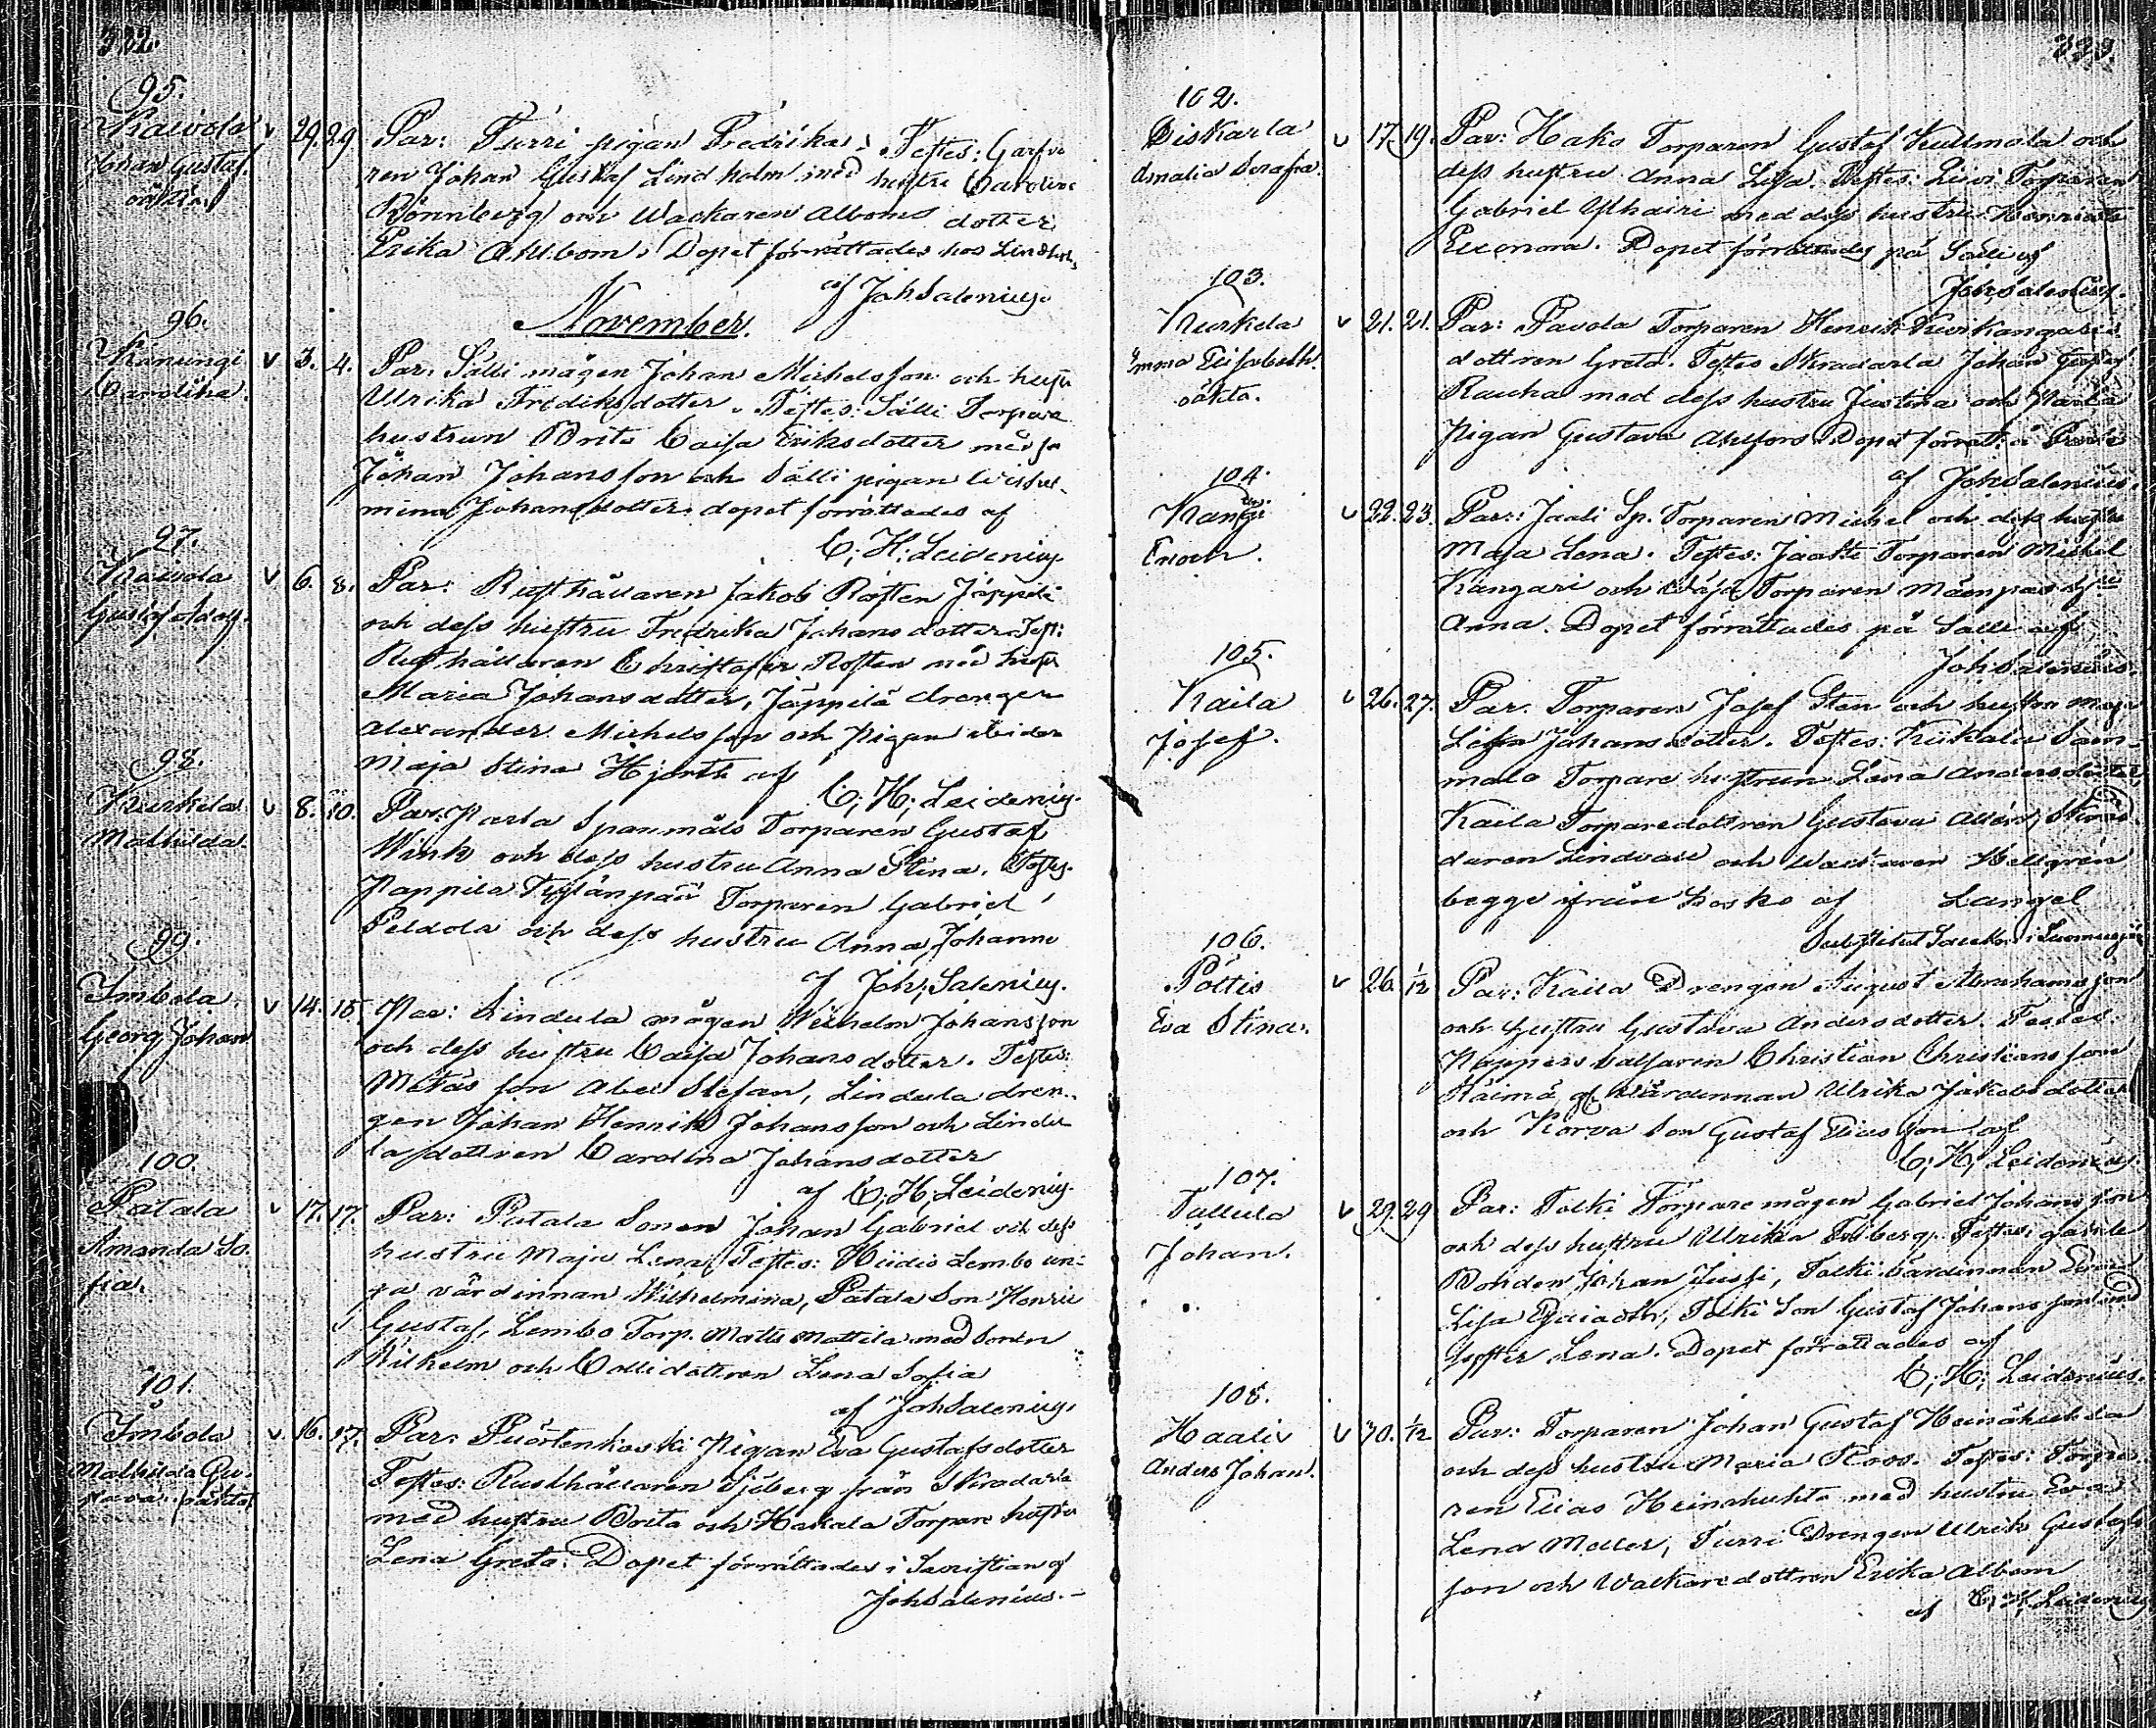 322.
95.
Kaivola
Johan Gustaf
oäkta.
v 29. 29. Par: Turri pigan Fredrika. Testes: Garfva
ren Johan Gustaf Lindholm med hustru Carolina
Rönnberg och Wackaren Alboms dotter
Erika Ahlbom. Dopet förrättades hos Lindholm
af Joh Salenius.
November.
96.
Kanungi
Carolina.
v 3. 4. Par. Sälli mågen Johan Michelsson och hustru
Ulrika Frediksdotter. Testes: Sälli Torpare
hustrun Brita Caisa Eriksdotter med
Johan Johansson och Sälli pigan Wilhel-
mina Johansdotter dopet förrättades af
C; H: Leidenius
97.
Kaivola
Gustaf Adolf.
v 6. 8. Par: Rusthållaren Jakob Rosten Jäppilä
och dess hustru Fredrika Johansdotter. Test:
Rusthållaren Christafer Rosten med hustru
Maria Johansdotter, Jäppilä drengen
Alexander Michelsson och Pigan
Maja Stina Hjorth af
C; H; Leidenius.
98.
Kurkela
Mathilda.
v 8. 10. Par: Parla Torparen Gustaf
Wink och dess hustru Anna Stina. Testes.
Pappila Torparen Gabriel
Peldola och dess hustru Anna Johanna
af Joh; Salenius.
99.
Imbola
Georg Johan
v 14. 15. Par: Lindula mågen Wilhelm Johansson
och dess hustru Caisa Johansdotter. Testes:
son Abel Stefan, Lindula dren-
gen Johan Henrik Johansson och Lindu
la dottren Carolina Johansdotter
af C; H; Leidenius.
100.
Patala
Amanda So.
fia.
v 17. 17. Par: Patala Sonen Johan Gabriel och dess
hustru Maja Lena, Testes: Hiidis Lembo un-
ga värdinnan Wilhelmina, Patala Son Henric
Gustaf, Lembo Torp. Matts Mattila med Sonen
Wilhelm och dottren Lena Sofia
af Joh Salenius.
101.
Imbola
Mathilda Gu-
stava. oäkta
v. 16. 17. Par: Puörtenkoski Pigan Eva Gustafsdotter
Testes: Rusthållaren Sjöberg från Skradarla
med hustru Brita och Hakala Torpare hustru
Lena Greta. Dopet förrättades i Sacristian af
Joh Salenius. -
323.
102.
Diskarla
Amalia Serafia.
v 17. 19. Par: Hako Torparen Gustaf Kullmala och
dess hustru Anna Lisa. Testes: Torparen
Gabriel med dess hustru
Eleonora. Dopet förrättades på Sälli af
Joh, Salenius.
103.
Kurkela
Emma Elisabeth.
oäkta.
v 21. 21. Par: Pavola Torparen Henrik Kivikangari
dottren Greta. Testes Skradarla Johan Gustaf
Rauha med dess hustru Justina och Parla
Pigan Gustava Ahlfors. Dopet förrätt. å
af Joh Salenius.
104.
Kangi
Enoch.
v 22. 23. Par: Jaali Sp. Torparen Michel och dess hustru
Maja Lena. Testes: Torparen Michel
Kangari och Torparen
Anna. Dopet förrättades på Sälli af
Joh Salenius.
105.
Kaila
Josef.
v 26. 27. Par. Torparen Josef Sten och hustru Maja
Lisa Johansdotter. Testes: Kiikala Sam-
malo Torpare hustrun Lena Andersdotter,
Kaila Torparedottren Gustava
daren Lindvall och Hellgrén
begge ifrån Kosko af Langel
i Suomusjä
106.
Pöltis
Eva Stina.
v 26. 1/12 Par: Kaila Drengen August Abrahamsson
och hustru Gustava Andersdotter. Testes.
Christian Christiansson
värdinnan Ulrika Jakobsdotter
och Korva Son Gustaf Eliasson af
C; H; Leidenius.
107.
Tallula
Johan.
v 29. 29 Par: Talki Torpare mågen Gabriel Johansson
och dess hustru Ulrika Friberg. Testes: gamle
Bonden Johan Jussi, Talki Värdinnan Eva
Lisa Talki Son Gustaf Johansson med
Syster Lena. Dopet förrättades af
C; H; Leidenius.
108.
Haali
Anders Johan.
v 30. 1/12 Par: Torparen Johan Gustaf Heinähuhta
och dess hustru Maria Roos. Testes: Torpa-
ren Elias Heinähuhta med hustru Eva
Lena Moller, Turri Drengen Ulrik Gustafs
son och Walkaredottren Erika Albom
af C; H; Leidenius